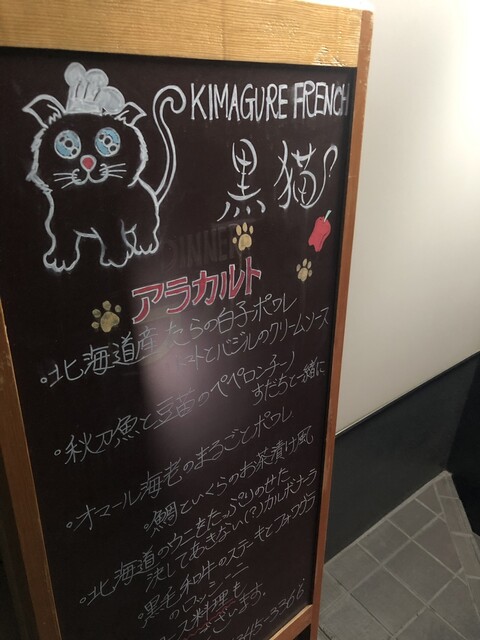 KIMAGURE FRENCH
黒猫
DINNER
アラカルト
・北海道産たらの白子ポワレ
トマトとバジルのクリームソース
・秋刀魚と豆苗のペペロンチーノ
すだちと一緒に
・オマール海老のまるごとポワレ
・鯛といくらのお茶漬け風
・北海道のウニをたっぷりのせた
決してあきない(?)カルボナーラ
・黒毛和牛のステーキとフォワグラ
のロッシーニ
ース料理も
ございます。
345-3366